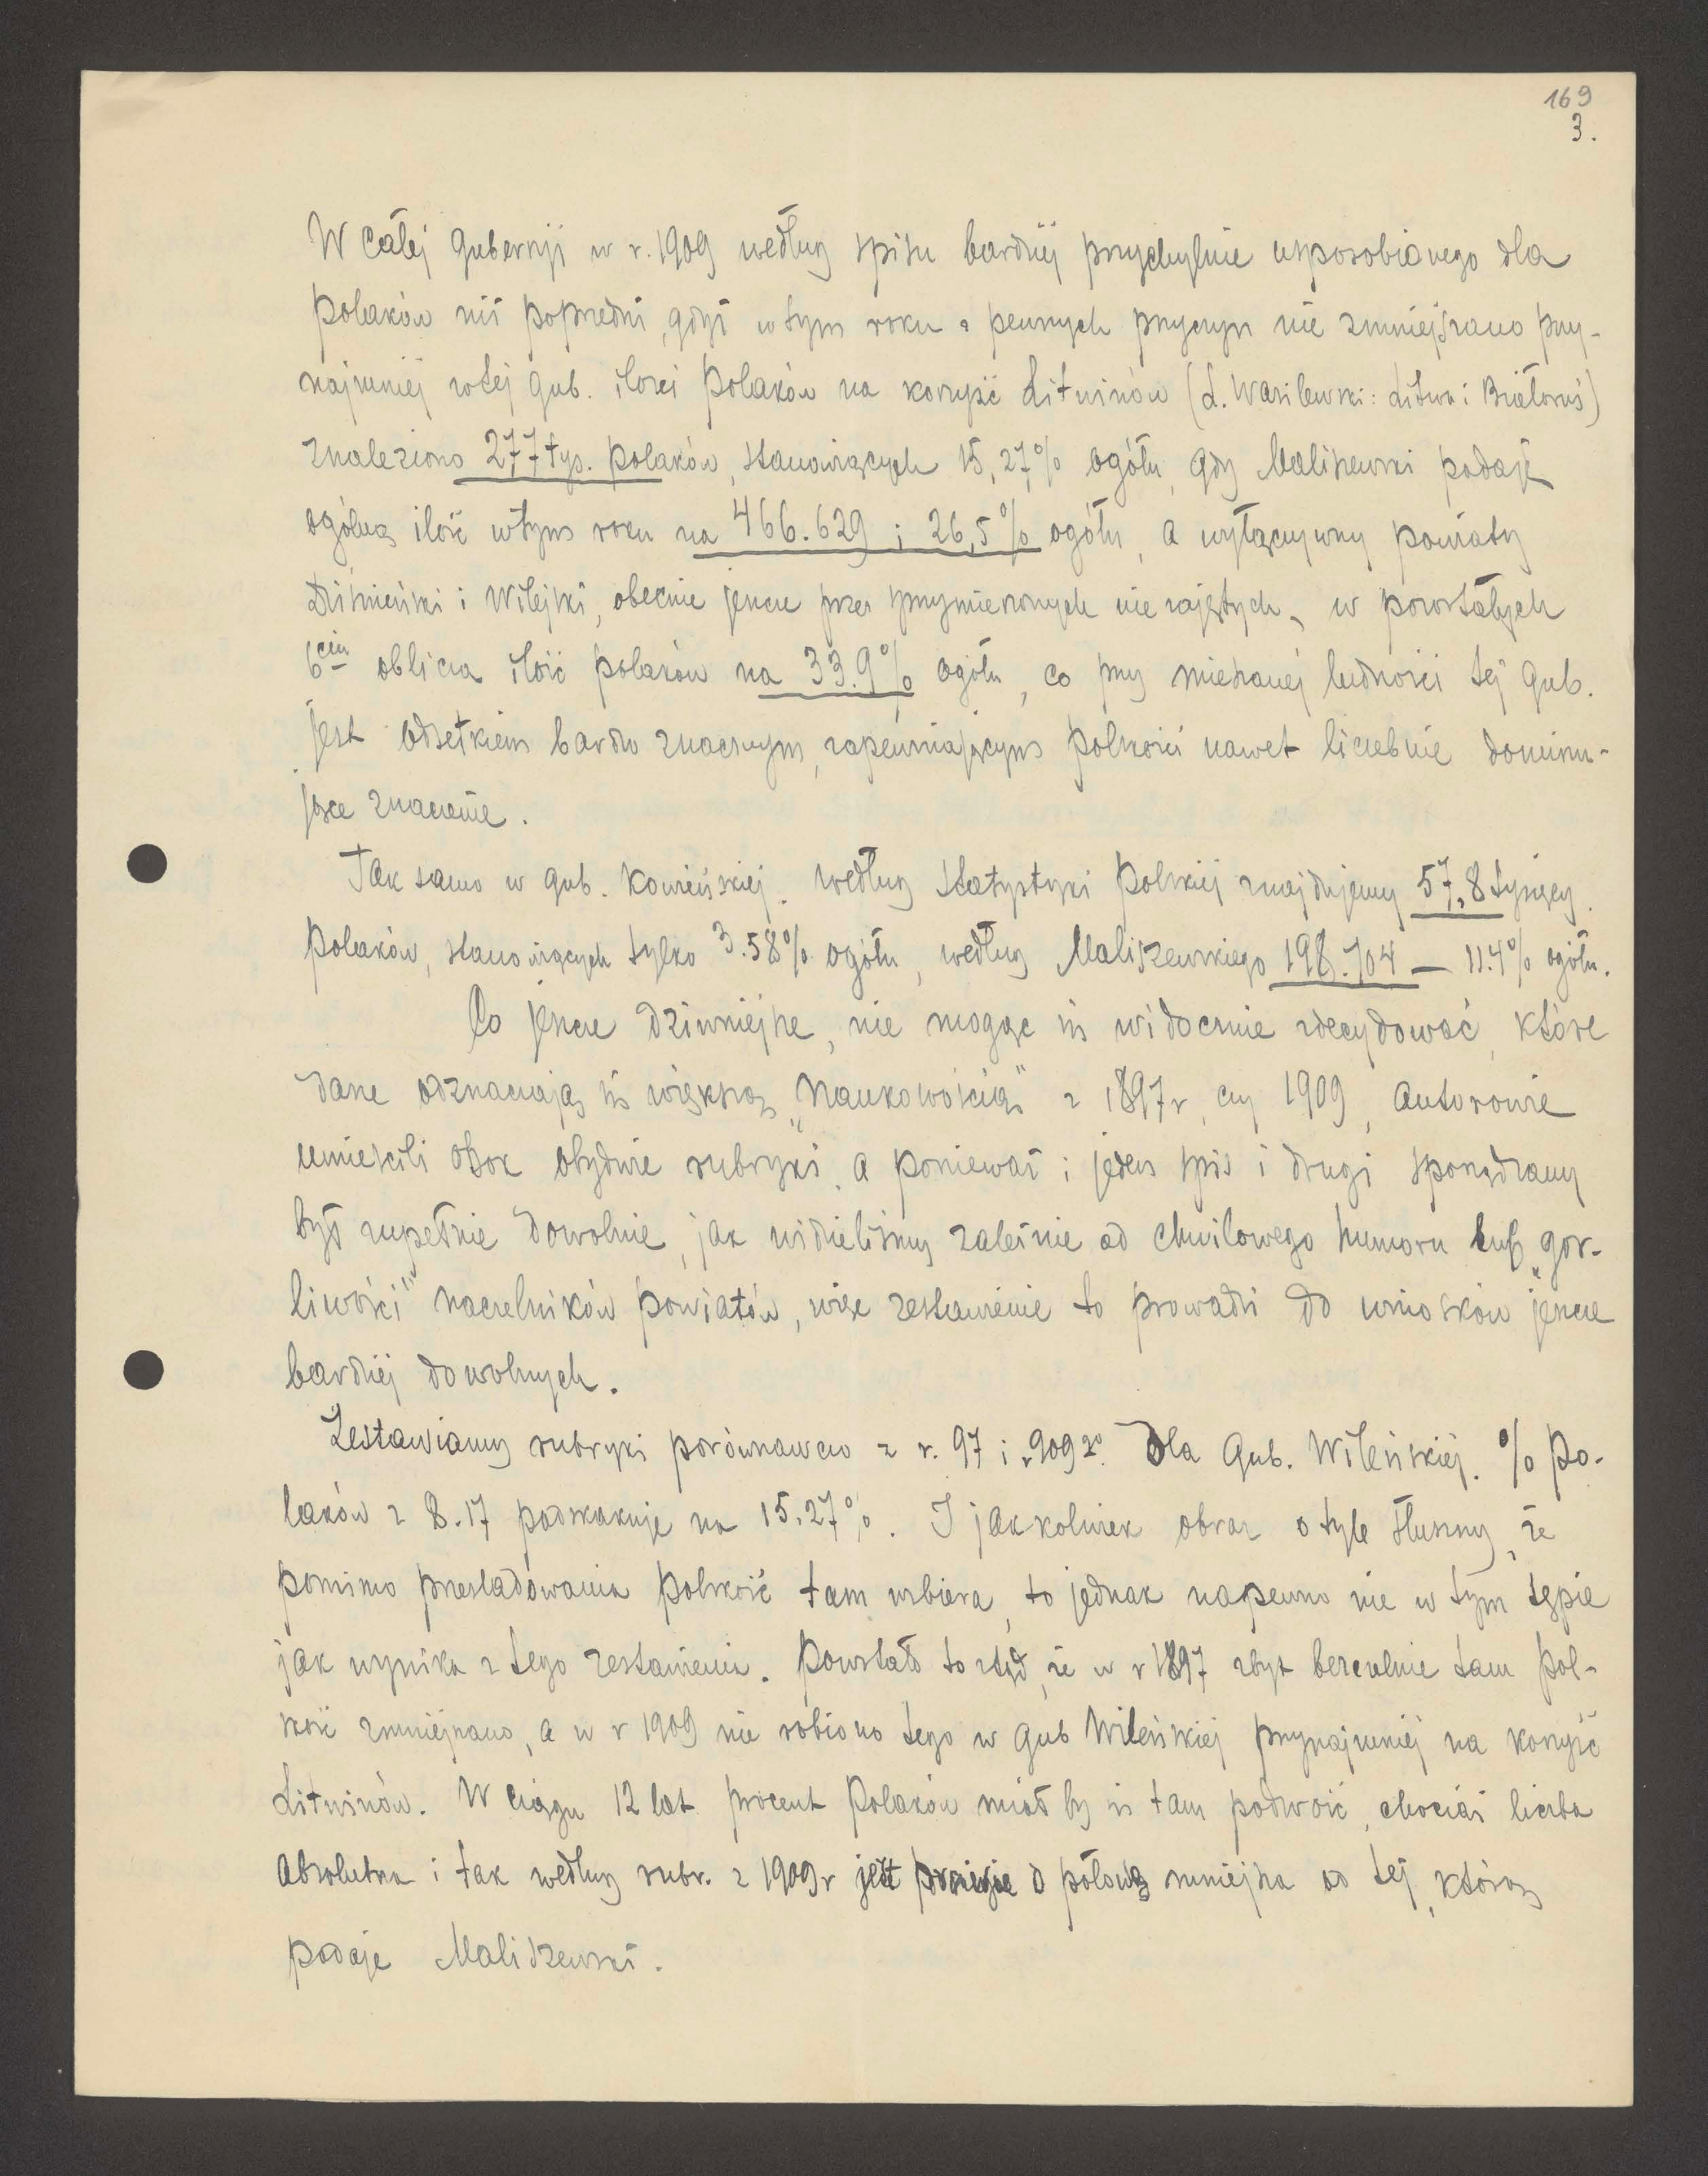 169
3.
W całej gubernji w r. 1909 według spisu bardziej przychylnie usposobionego dla
polaków niż poprzedni, gdyż w tym roku z pewnych przyczyn nie zmniejszano przy-
najmniej w tej gub. ilości Polaków na korzyść Litwinów (L. Wasilewski: Litwa i Białoruś)
znaleziono 277 tys. polaków, stanowiących 15,27% ogółu, gdy Maliszewski podaje
ogólną ilość w tym roku na 466.629 i 26,5% ogółu, a wyłączywszy powiaty
Dziśnieński i Wilejski, obecnie jeszcze przez sprzymierzonych nie zajętych, w pozostałych
6ciu oblicza ilość polaków na 33.9% ogółu, co przy mieszanej ludności tej gub.
jest odsetkiem bardzo znacznym, zapewniającym polskości nawet liczebnie dominu-
jące znaczenie.
Tak samo w gub. Kowieńskiej. według statystyki Polskiej znajdujemy 57,8 tysięcy
Polaków, stanowiących tylko 3.58% ogółu, według Maliszewskiego 198.704 — 11.4% ogółu.
Co jeszcze dziwniejsze, nie mogąc się widocznie zdecydować, które
dane odznaczają się większą „Naukowością" z 1897 r, czy 1909, autorowie
umieścili obok obydwie rubryki. a ponieważ i jeden spis i drugi sporządzany
był zupełnie dowolnie, jak widzieliśmy zależnie od chwilowego humoru lub „gor-
liwości" naczelników powiatów, więc zestawienie to prowadzi do wniosków jeszcze
bardziej dowolnych.
Zestawiamy rubryki porównawczo z r. 97 i 909go. Dla Gub. Wileńskiej. % Po-
laków z 8.17 podskakuje na 15.27%. I jakkolwiek obraz o tyle słuszny, że
pomimo prześladowania polskość tam wzbiera, to jednak napewno nie w tym tępie
jak wynika z tego zestawienia. Powstało to stąd, że w r 1897 zbyt bezczelnie tam pol-
skość zmniejszano, a w r 1909 nie robiono tego w gub Wileńskiej przynajmniej na korzyść
Litwinów. W ciągu 12 lat procent Polaków miał by się tam podwoić, chociaż liczba
absolutna i tak według rubr. z 1909 r jest prawie o połowę mniejsza od tej, którą
podaje Maliszewski.